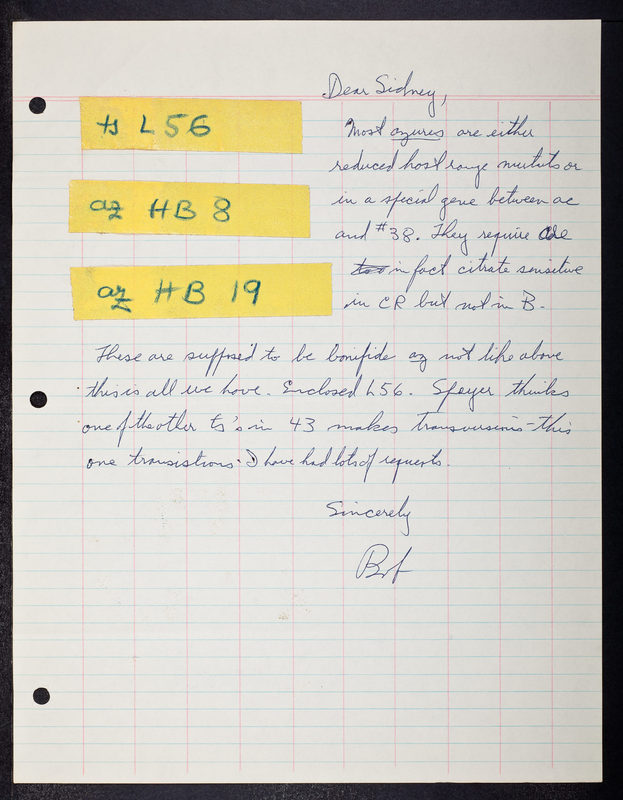 Dear Sidney,
ts L56
Most azures are either
reduced host range mututs or
in a special gene between ac
az HB 8
and #38. They require
in fact citrate sensitive
az HB 19
in CR but not in B.
These are suppose'd to be bonifide az not like above
this is all we have. Enclosed L56. Speyer thinks
one of the other ts's in 43 makes transversions - this
one transistions. I have had lots of requests.
Sincerely
Bob